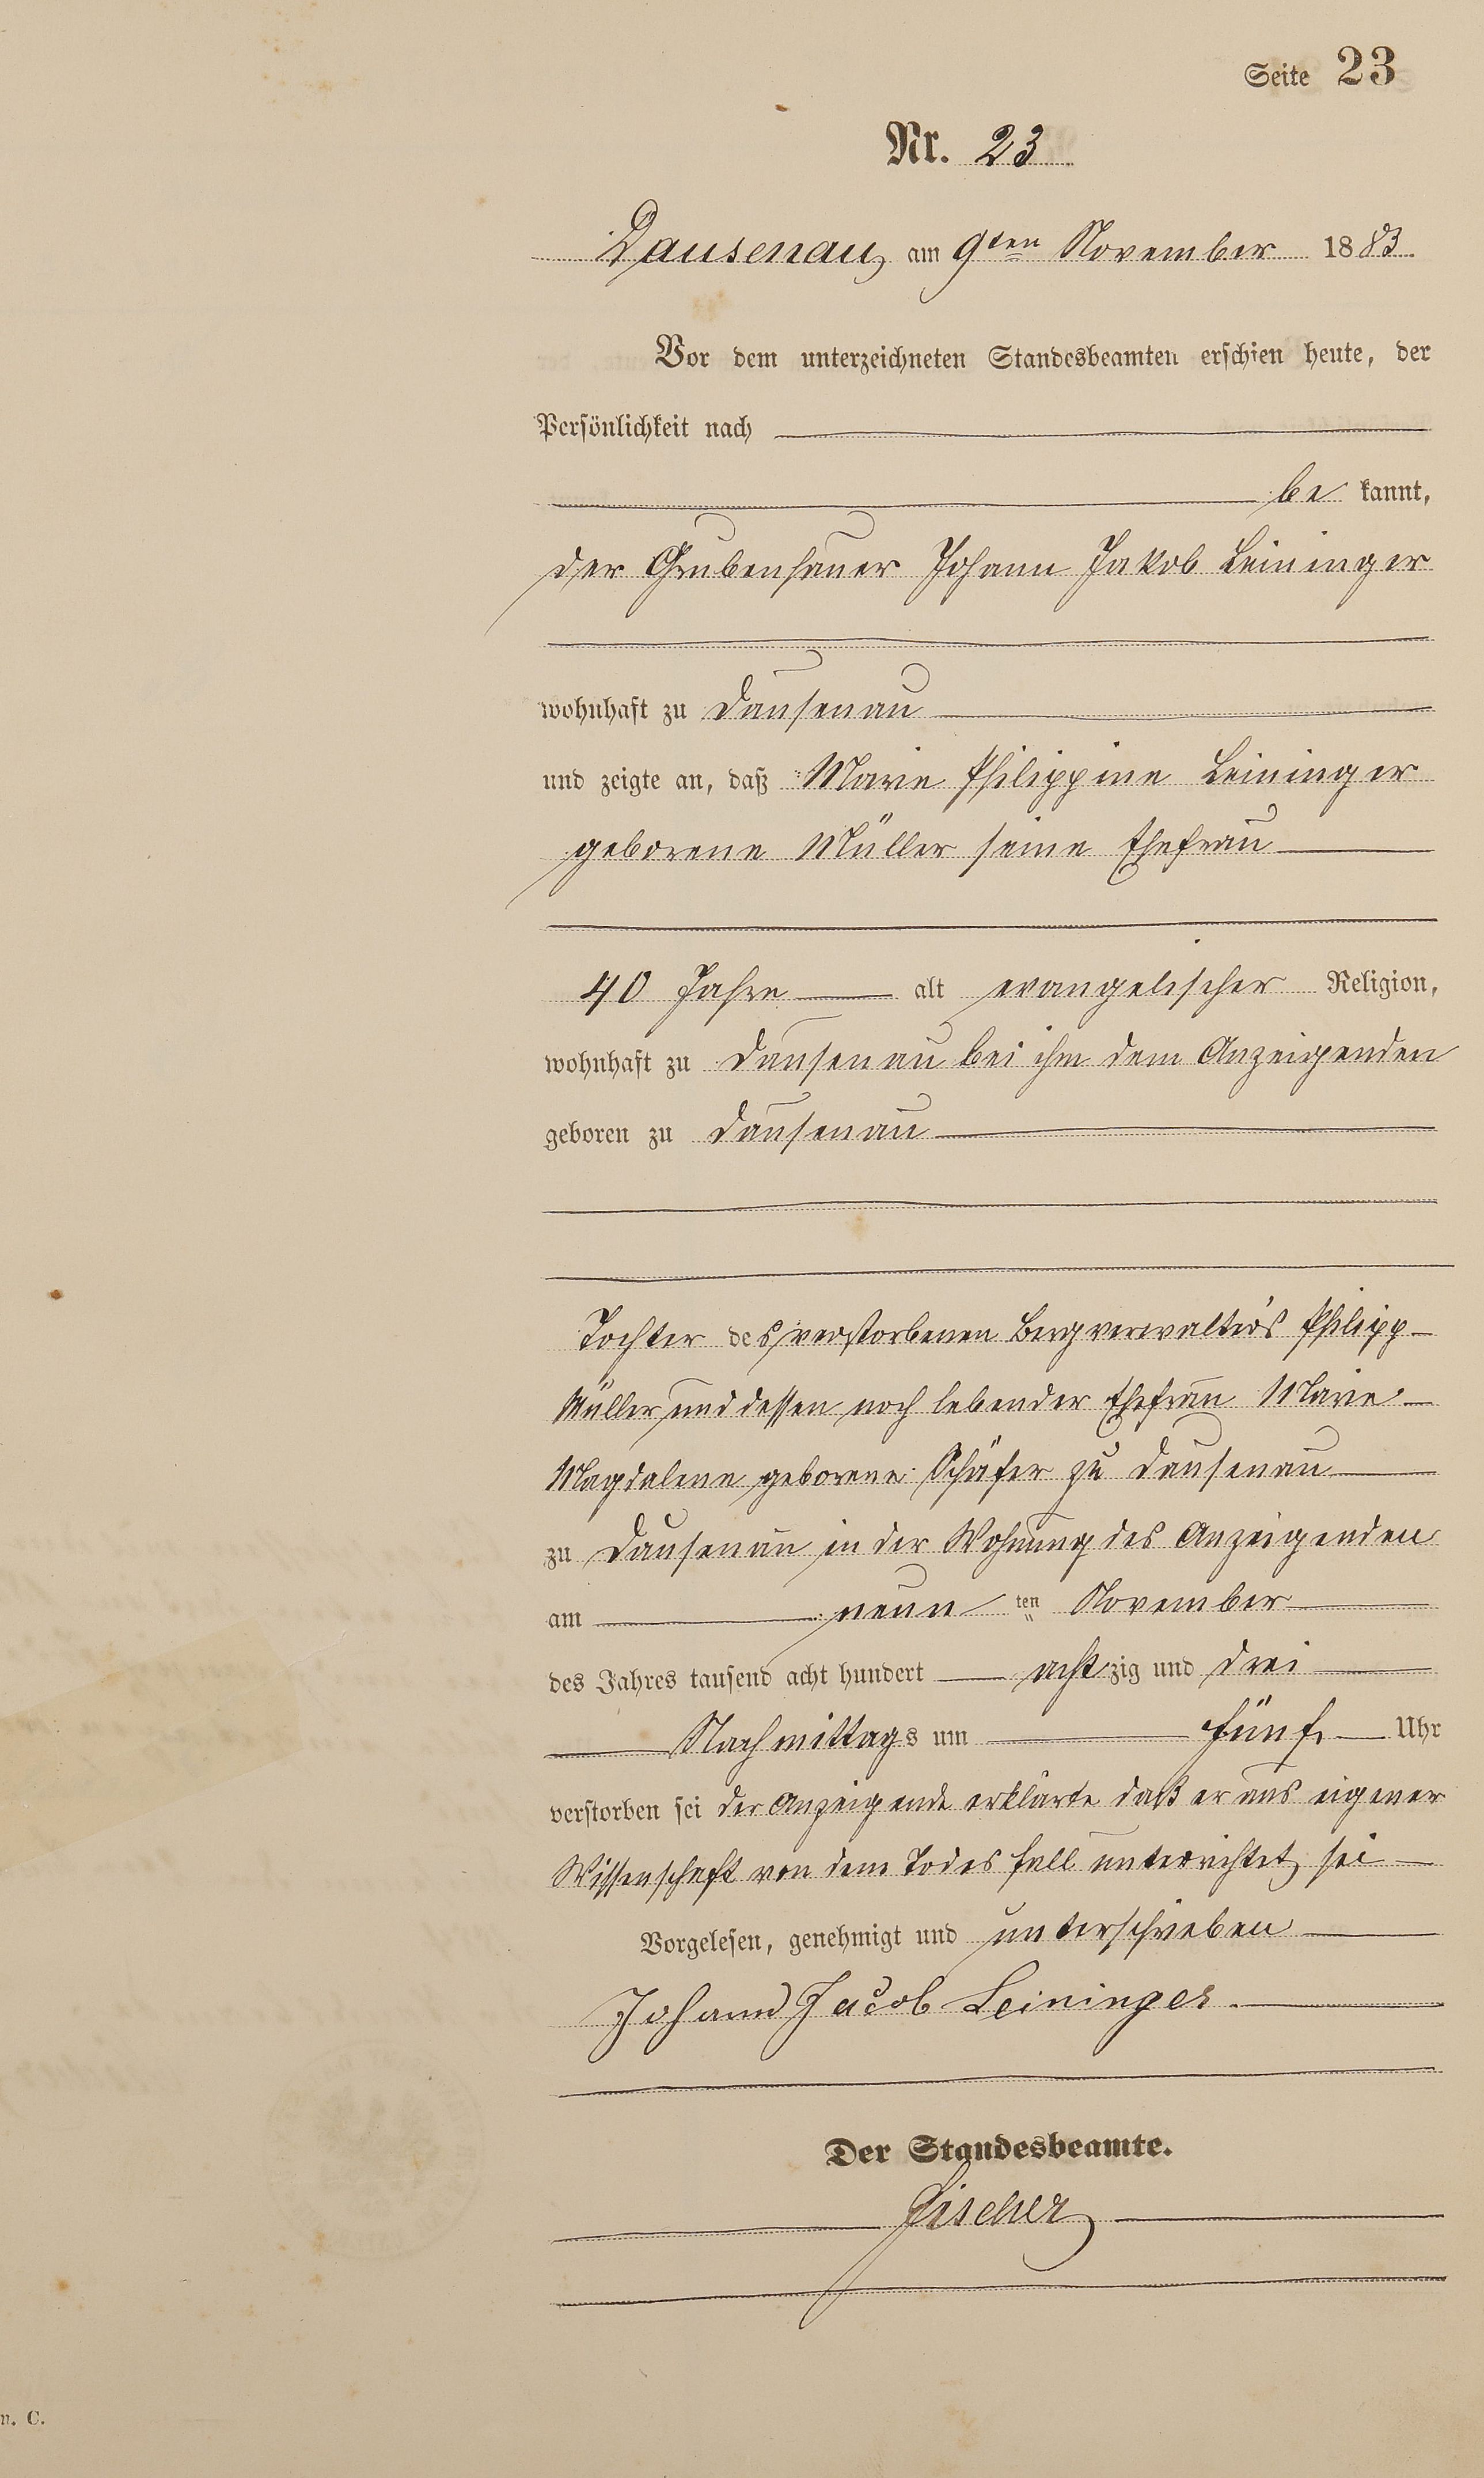 Seite 23
Nr. 23
Dausenau, am 9ten November 1883.
Vor dem unterzeichneten Standesbeamten erschien heute, der
Persönlichkeit nach
be kannt,
der Grubenhauer Johann Jakob Leininger
wohnhaft zu Dausenau
und zeigte an, daß Marie Philippine Leininger
geborene Müller seine Ehefrau
40 Jahre alt evangelischer Religion,
wohnhaft zu Dausenau bei ihm dem Anzeigenden
geboren zu Dausenau
Tochter des verstorbenen Bergverwalters Philipp
Müller und dessen noch lebender Ehefrau Marie
Magdalene geborene Schäfer zu Dausenau
zu Dausenau in der Wohnung des Anzeigenden
am neun ten November
des Jahres tausend acht hundert acht zig und drei
Nachmittags um fünf Uhr
verstorben sei der Anzeigende erklärte daß er aus eigener
Wissenschaft von dem Todesfall unterrichtet sei
Vorgelesen, genehmigt und unterschrieben
Johann Jacob Leininger.
Der Standesbeamte.
Fischer
n. C.